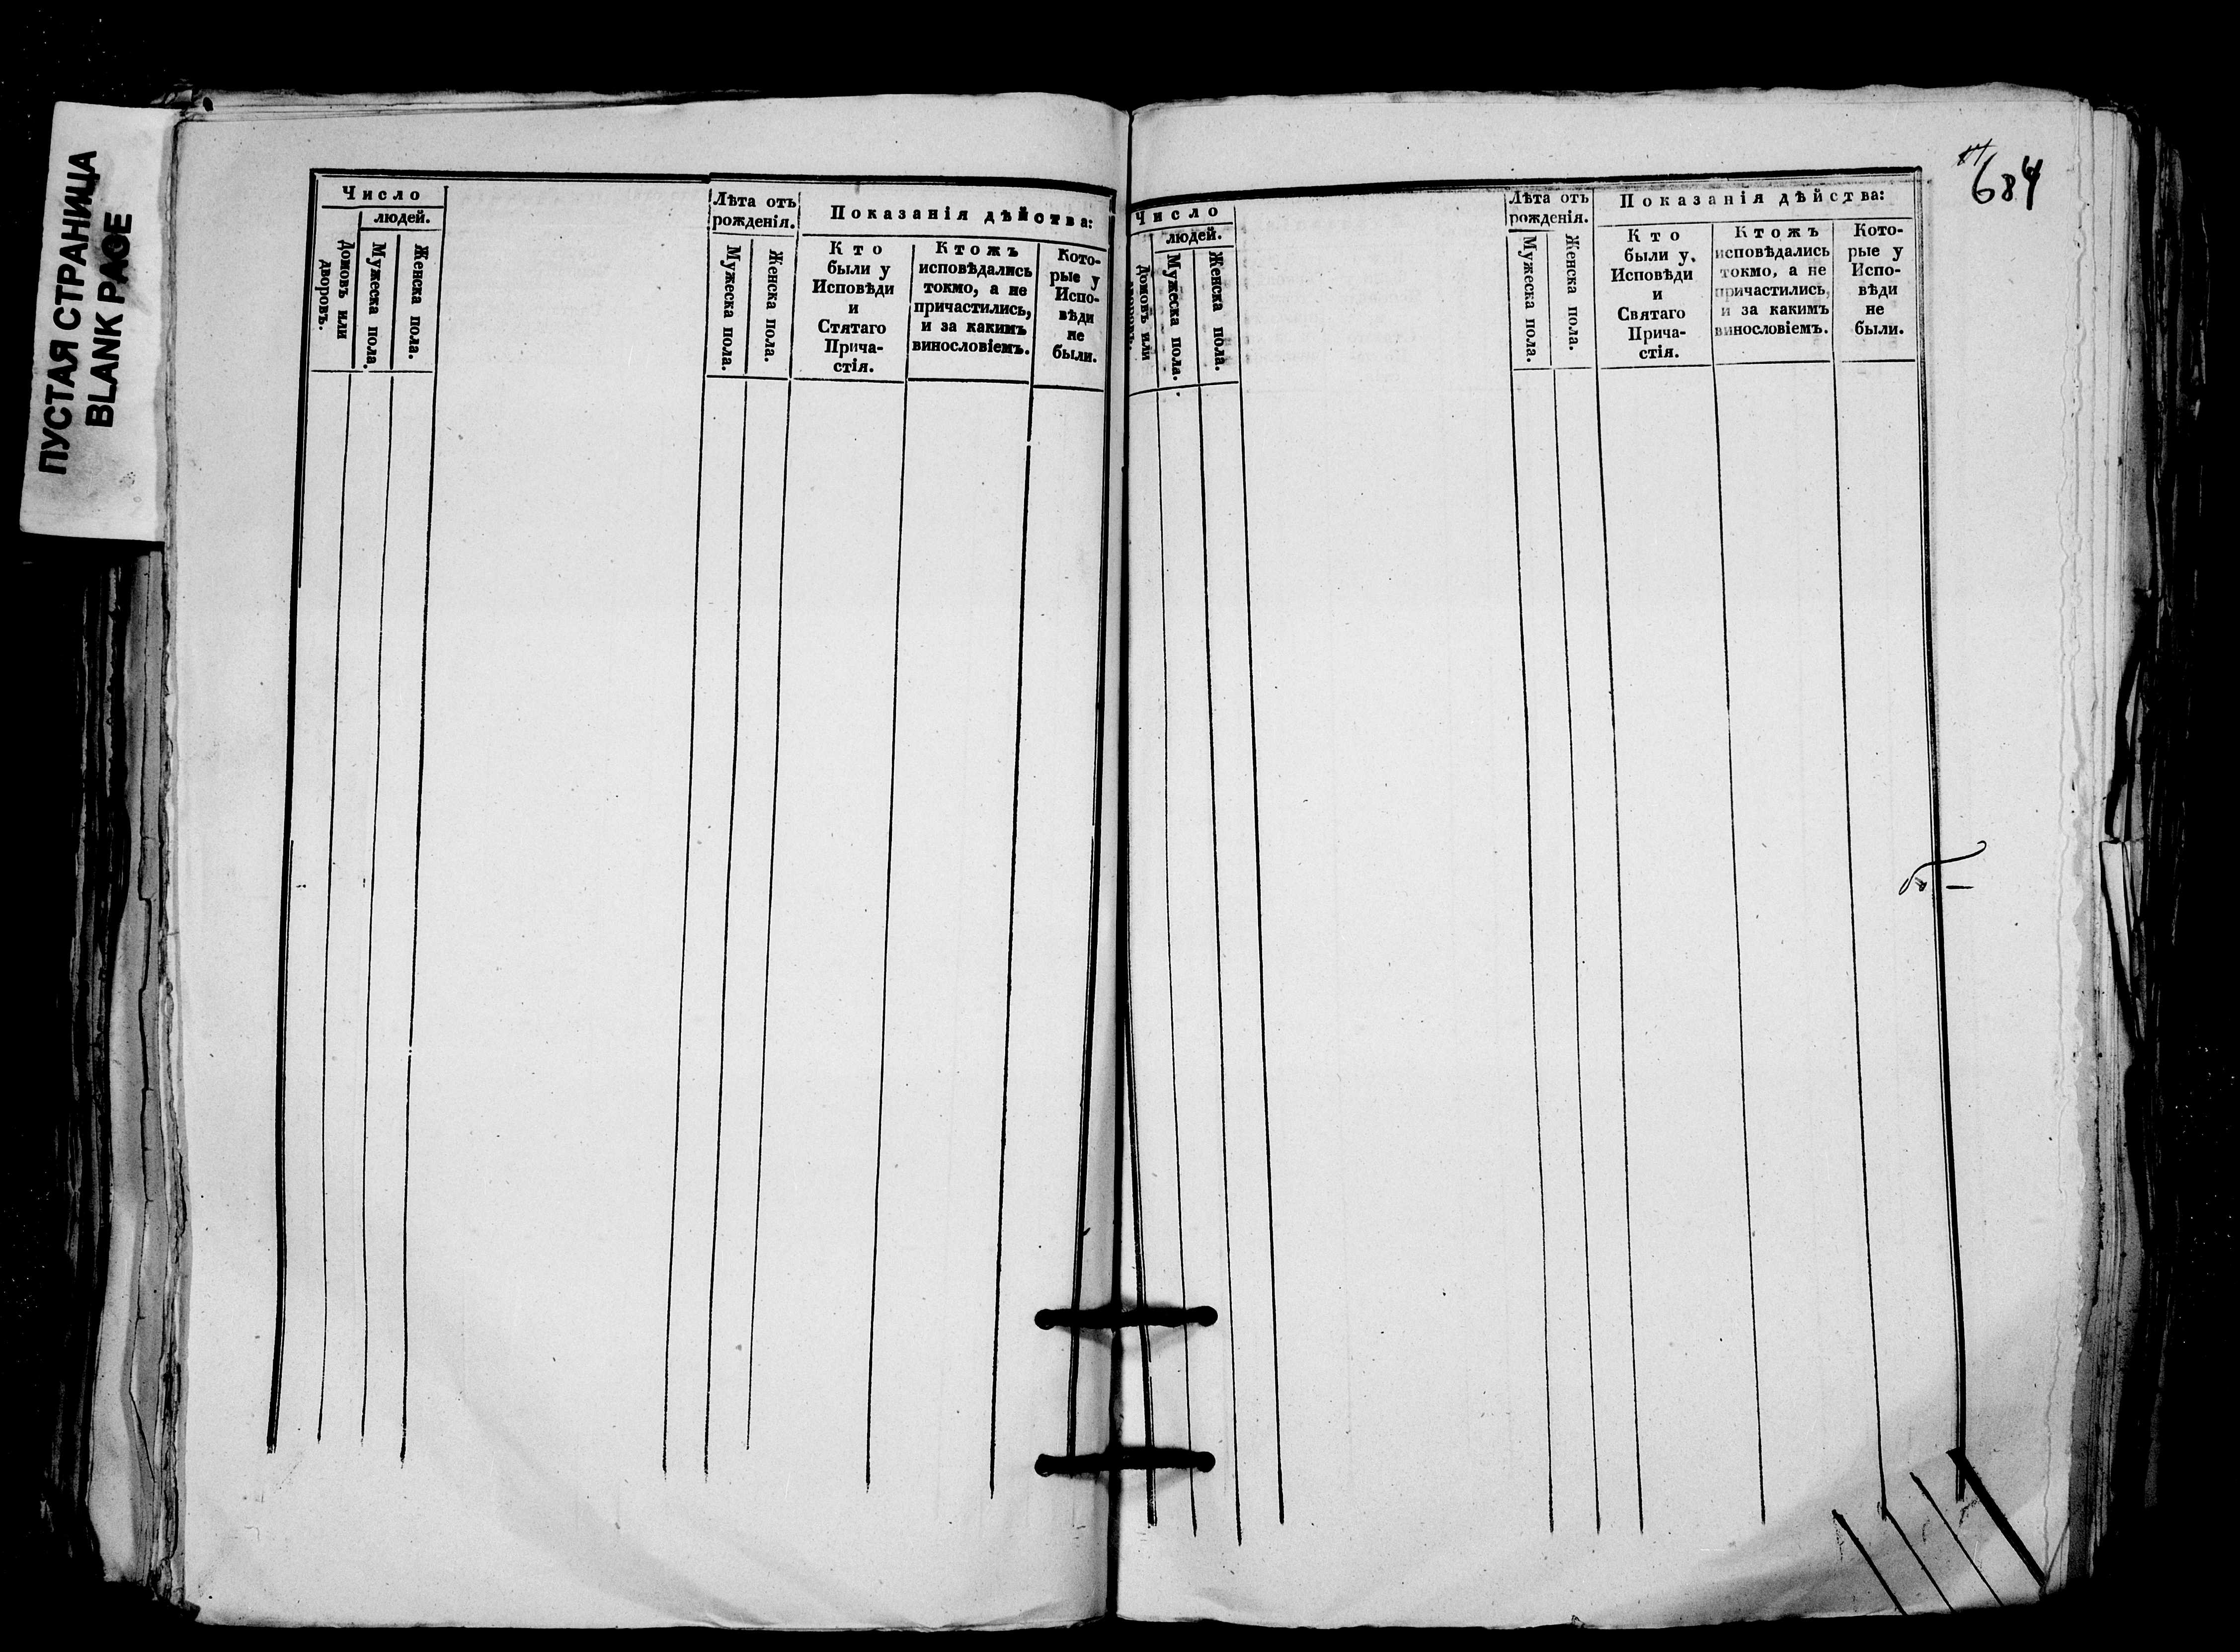 ПУСТАЯ СТРАНИЦА
BLANK PAGE
Число
людей.
Домовъ или
дворовъ.
Мужеска пола.
Женска пола.
Лѣта отъ
рожденія.
Мужеска пола.
Женска пола.
Показанія дѣйства:
Кто
были у
Исповѣди
и
Стятаго
Прича-
стія.
Ктожъ
исповѣдались
токмо, а не
причастились,
и за какимъ
винословіемъ.
Кото-
рые у
Испо-
вѣди
не
были.
684
Число
людей.
Домовъ или
дворовъ.
Мужеска пола.
Женска пола.
Лѣта отъ
рожденія.
Мужеска пола.
Женска пола.
Показанія дѣйства:
Кто
были у
Исповѣди
и
Святаго
Прича-
стія.
Ктожъ
исповѣдались
токмо, а не
причастились,
и за какимъ
винословіемъ.
Кото-
рые у
Испо-
вѣди
не
были.